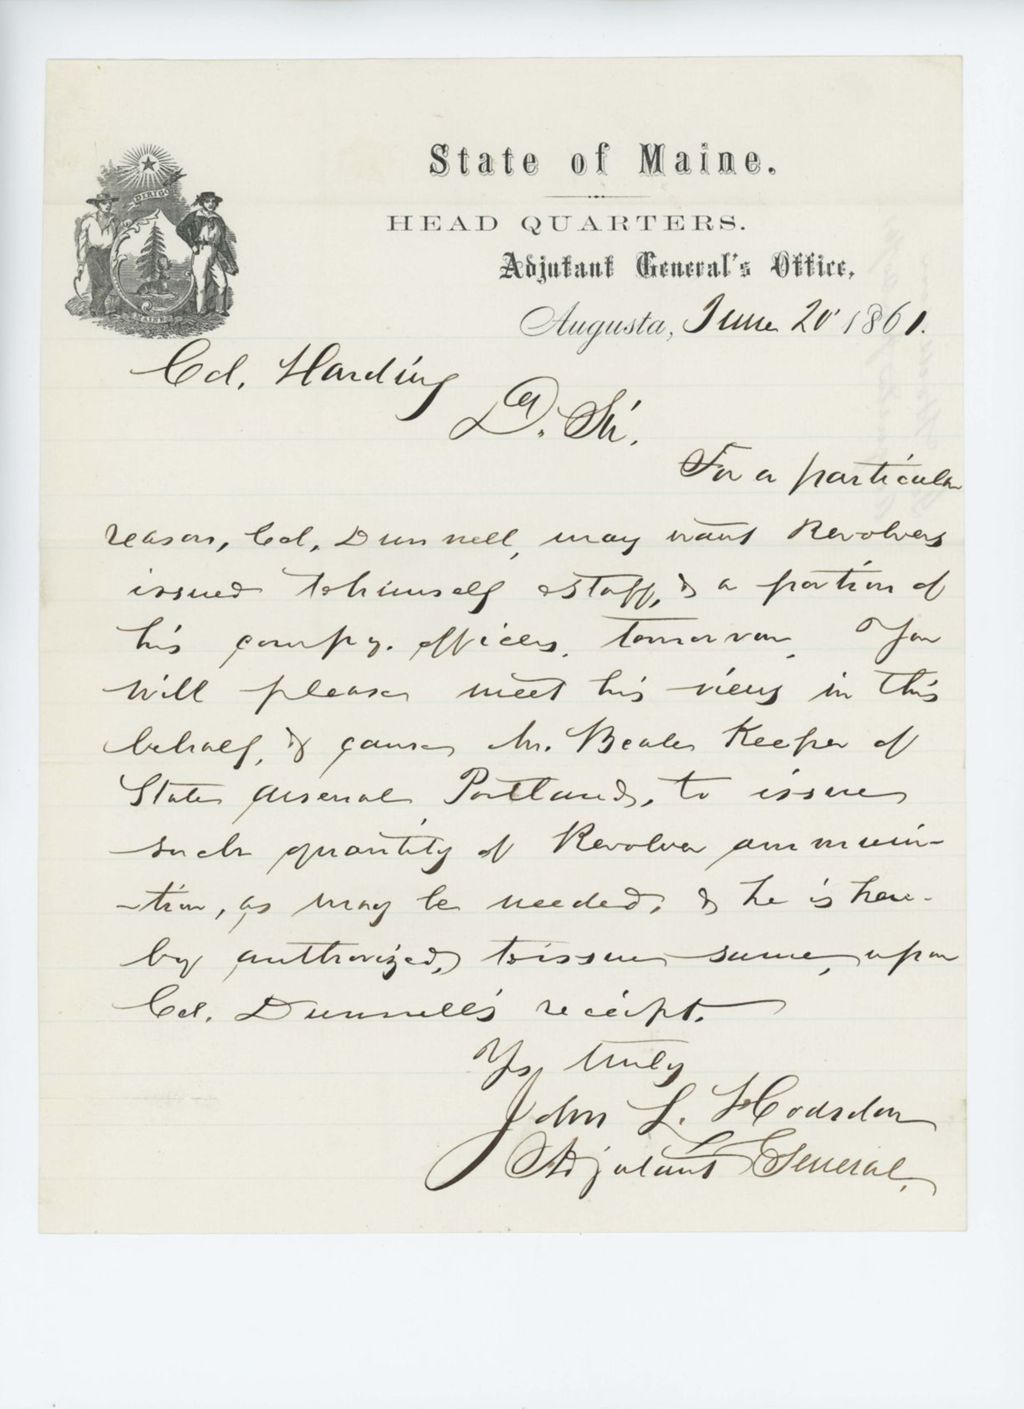 DIRIGO
MAINE
State of Maine.
HEAD QUARTERS.
Adjutant General's Office,
Augusta, June 20 1861.
Col. Harding
D. Sir.
For a particular
reason, Col. Dunnell, may want Revolvers
issued to himself & staff, & a portion of
his compy. officers, tomorrow. You
will please meet his views in this
behalf, & cause Mr. Beale Keeper of
State Arsenal Portland, to issue
such quantity of Revolver ammuni-
-tion, as may be needed, & he is here-
by authorized, to issue same, upon
Col. Dunnell's receipt.
Yrs truly
John L. Hodsdon
Adjutant General.